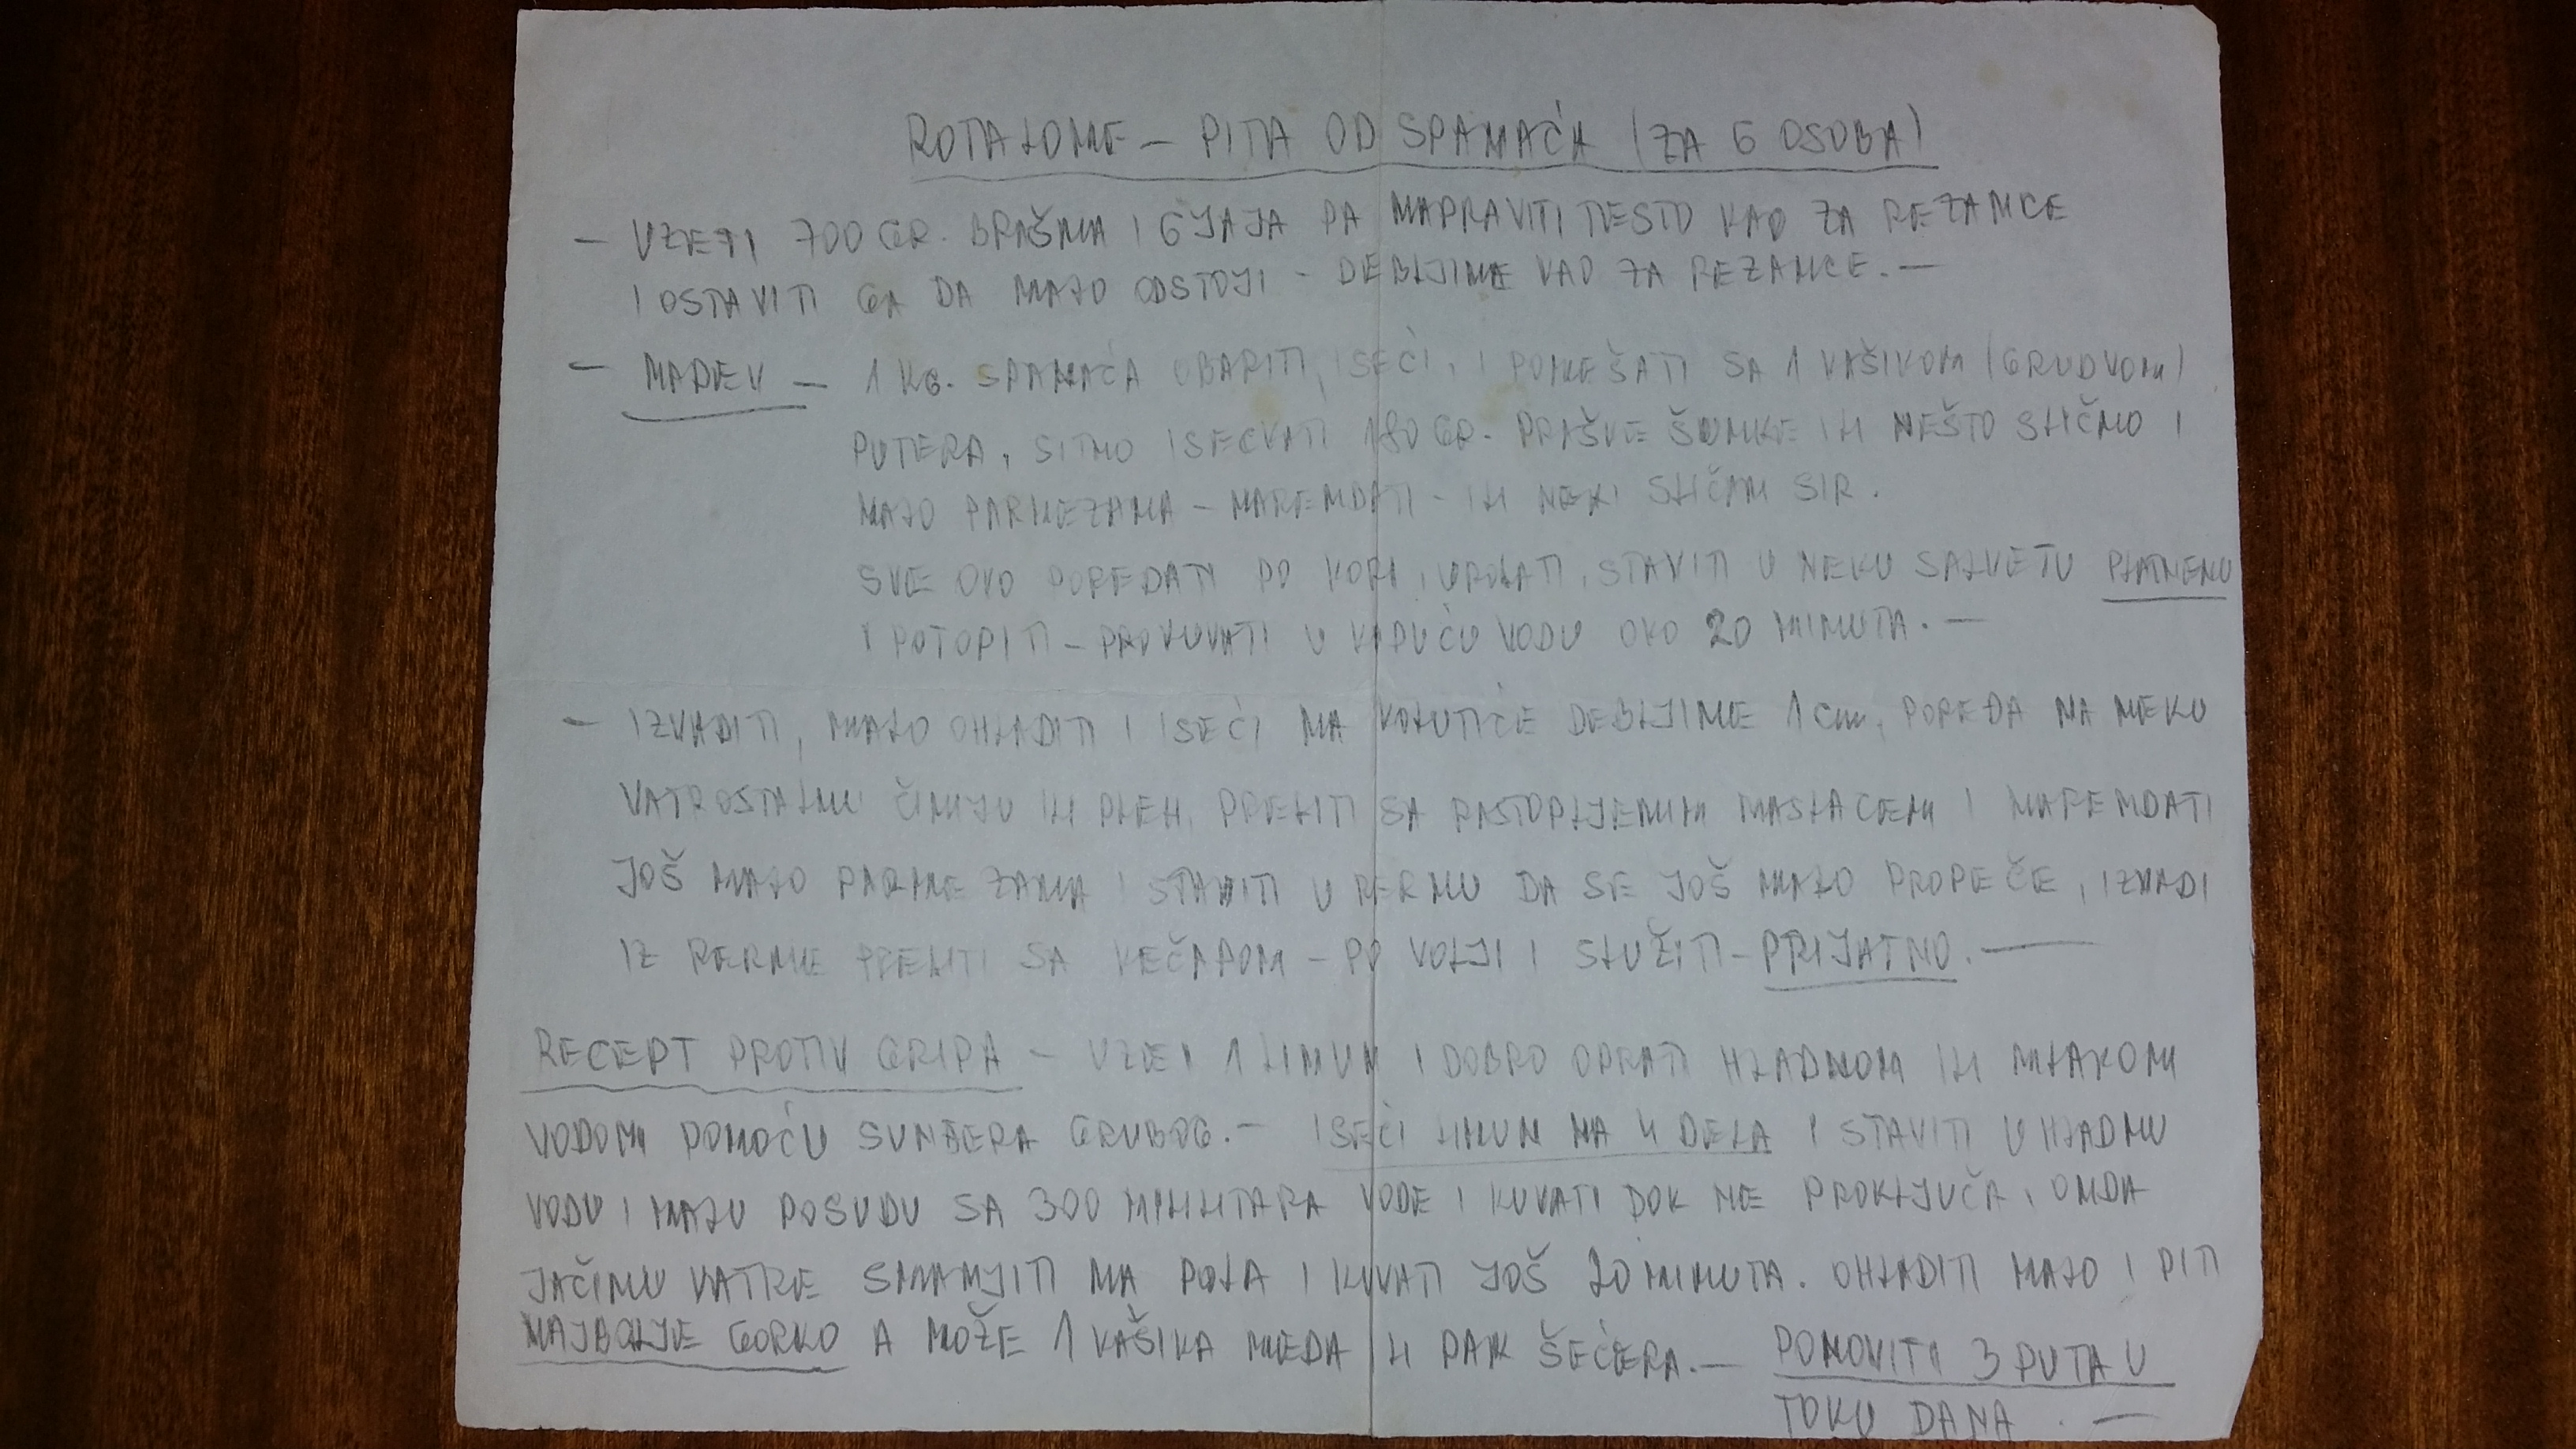 ROTALONE - PITA OD SPANAĆA (ZA 6 OSOBA)
- UZETI 700 GR. BRAŠNA I 6 JAJA PA NAPRAVITI TESTO KAO ZA REZANCE
I OSTAVITI GA DA MALO ODSTOJI - DEBLJINE KAO ZA REZANCE. -
- NADEV - 1 KG. SPANAĆA OBARITI, ISEĆI, I POMEŠATI SA 1 KAŠIKOM (GRUDVOM)
PUTERA, SITNO ISECKATI 180 GR. PRŠUE ŠUNKE ILI NEŠTO SLIČNO I
MALO PARMEZANA - NARENDATI - ILI NEKI SLIČNI SIR.
SVE OVO POREDATI PO KORI, UROLATI, STAVITI U NEKU SALVETU PLATNENU
I POTOPITI - PROKUVATI U KLJUČALU VODU OKO 20 MINUTA. -
- IZVADITI, MALO OHLADITI I ISEĆI NA KOLUTIĆE DEBLJINE 1 CM, POREĐA NA NEKU
VATROSTALNU ČINIJU ILI PLEH, PRELITI SA RASTOPLJENIM MASLACEM I NARENDATI
JOŠ MALO PARMEZANA I STAVITI U RERNU DA SE JOŠ MALO PROPEČE, IZVADI
IZ RERNE PRELITI SA KEČAPOM - PO VOLJI I SLUŽITI - PRIJATNO. -
RECEPT PROTIV GRIPA - UZETI 1 LIMUN I DOBRO OPRATI HLADNOM ILI MLAKOM
VODOM POMOĆU SUNĐERA GRUBOG. - ISEĆI LIMUN NA 4 DELA I STAVITI U HLADNU
VODU I MALU POSUDU SA 300 MILILITARA VODE I KUVATI DOK NE PROKLJUČA, ONDA
JAČINU VATRE SMANJITI NA POLA I KUVATI JOŠ 20 MINUTA. OHLADITI MALO I PITI
NAJBOLJE GORKO A MOŽE 1 KAŠIKA MEDA ILI PAK ŠEĆERA. - PONOVITI 3 PUTA U
TOKU DANA. -